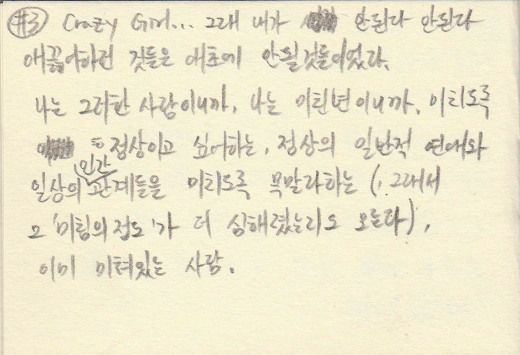 #3 Crazy Girl... 그래 내가 안된다 안된다
애끓어하던 것들은 애초에 안될것들이었다.
나는 그러한 사람이니까, 나는 미친년이니까. 미치도록
정상이고 싶어하는, 정상의 일반적 연애와
일상의 인간관계들을 미치도록 목말라하는 (, 그래서
그 '미침의정도'가 더 심해졌는지도 모른다),
이미 미쳐있는 사람.